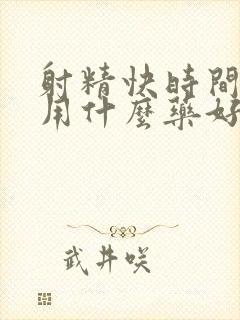 射精快時間
用什麼藥好
武井咲